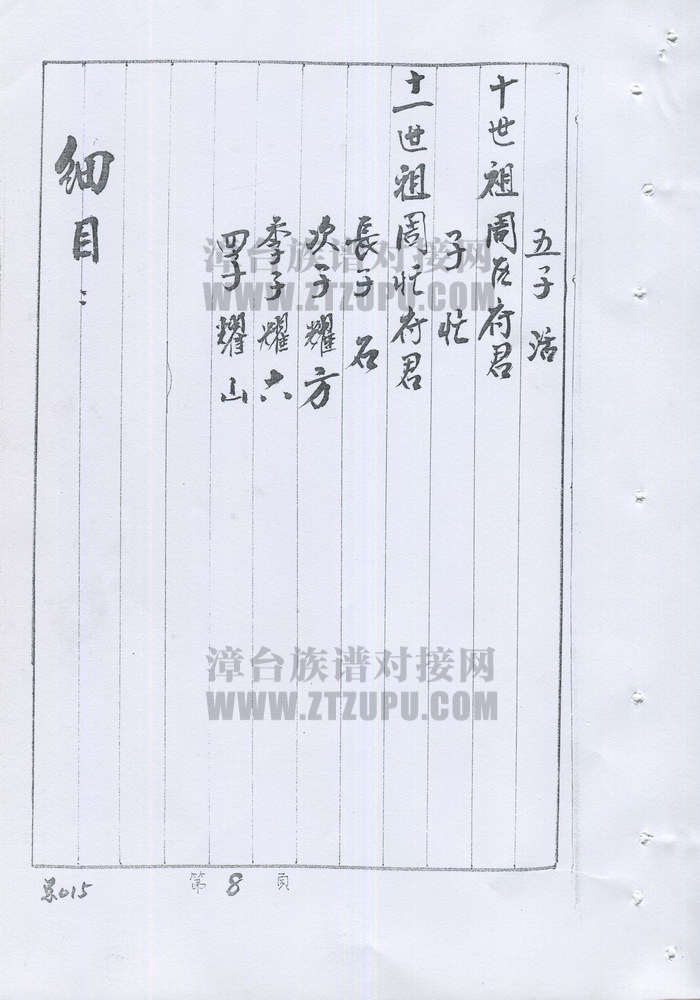 五子 活
十世祖周匠府君
子 忙
十一世祖周忙府君
長子 石
次子 耀方
季子 耀六
四子 耀山
細目：
漳台族谱对接网
WWW.ZTZUPU.COM
漳台族谱对接网
WWW.ZTZUPU.COM
第 8 頁
015